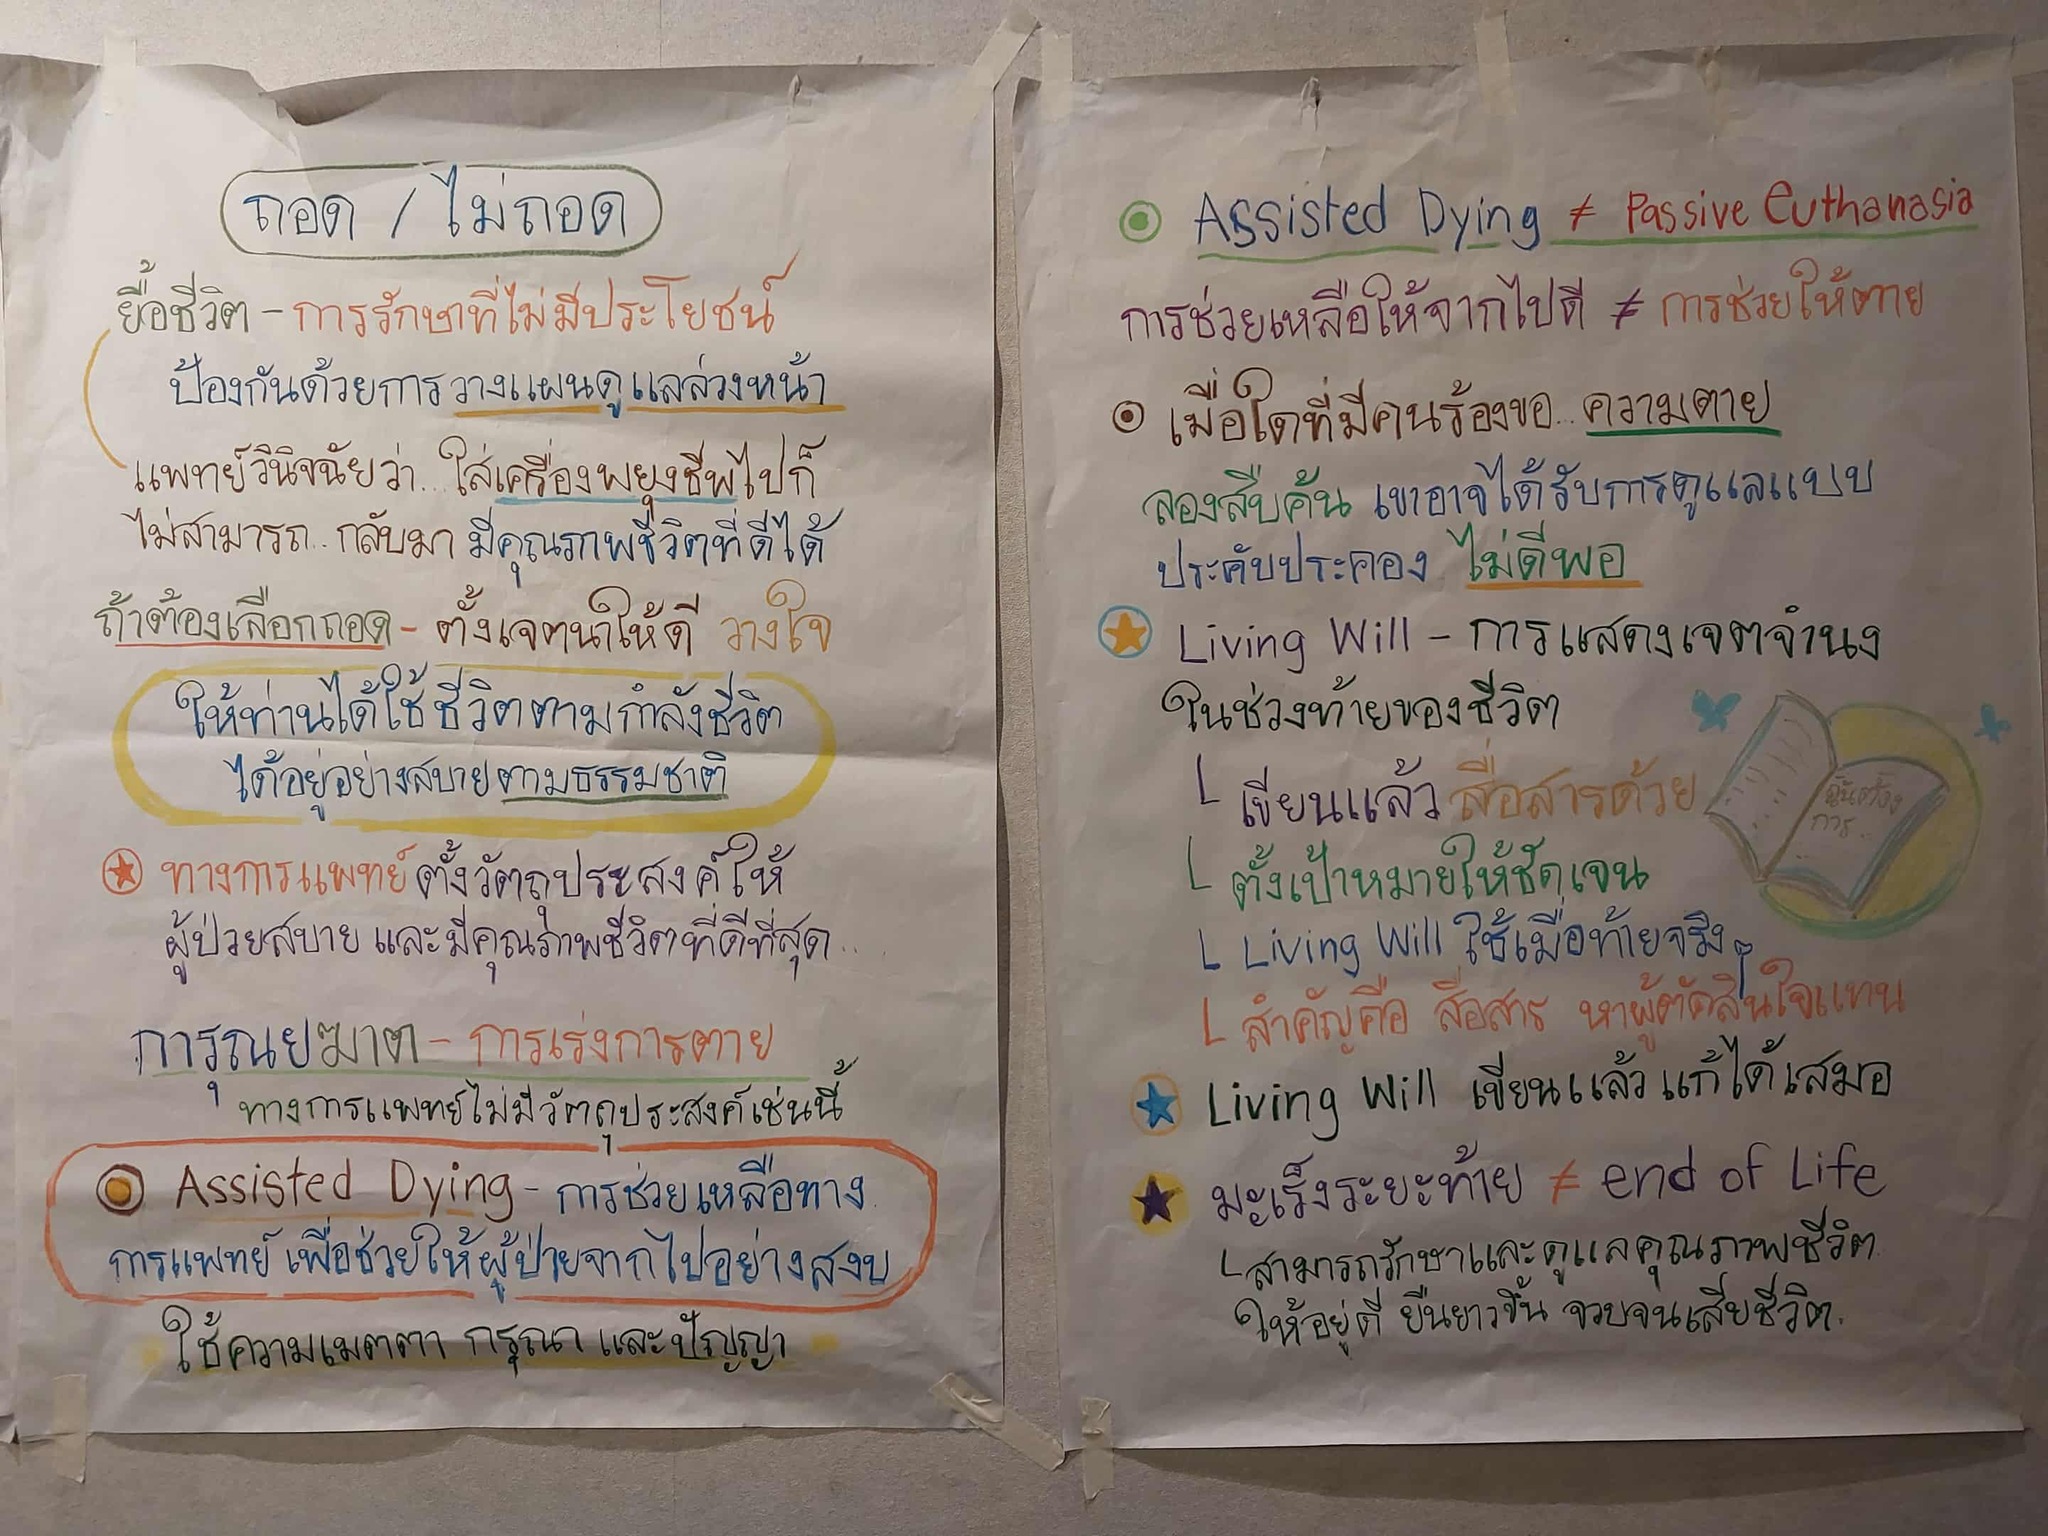 ถอด / ไม่ถอด
ยื้อชีวิต - การรักษาที่ไม่มีประโยชน์
ป้องกันด้วยการวางแผนดูแลล่วงหน้า
แพทย์วินิจฉัยว่า... ใส่เครื่องพยุงชีพไปก็
ไม่สามารถ.. กลับมา มีคุณภาพชีวิตที่ดีได้
ถ้าต้องเลือกถอด - ตั้งเจตนาให้ดี วางใจ
ให้ท่านได้ใช้ชีวิตตามกำลังชีวิต
ได้อยู่อย่างสบายตามธรรมชาติ
ทางการแพทย์ตั้งวัตถุประสงค์ให้
ผู้ป่วยสบาย และมีคุณภาพชีวิตที่ดีที่สุด...
การุณยฆาต - การเร่งการตาย
ทางการแพทย์ไม่มีวัตถุประสงค์เช่นนี้
Assisted Dying - การช่วยเหลือทาง
การแพทย์ เพื่อช่วยให้ผู้ป่วยจากไปอย่างสงบ
ใช้ความเมตตา กรุณา และปัญญา
Assisted Dying ≠ Passive Euthanasia
การช่วยเหลือให้จากไปดี ≠ การช่วยให้ตาย
เมื่อใดที่มีคนร้องขอ... ความตาย
ลองสืบค้น เขาอาจได้รับการดูแลแบบ
ประคับประคอง ไม่ดีพอ
Living Will - การแสดงเจตจำนง
ในช่วงท้ายของชีวิต
เขียนแล้ว สื่อสารด้วย
ฉันต้อง
การ..
ตั้งเป้าหมายให้ชัดเจน
Living Will ใช้เมื่อท้ายจริงๆ
สำคัญคือ สื่อสาร หาผู้ตัดสินใจแทน
Living Will เขียนแล้ว แก้ได้เสมอ
มะเร็งระยะท้าย ≠ end of Life
สามารถรักษาและดูแลคุณภาพชีวิต
ให้อยู่ดี ยืนยาวขึ้น จวบจนเสียชีวิต.